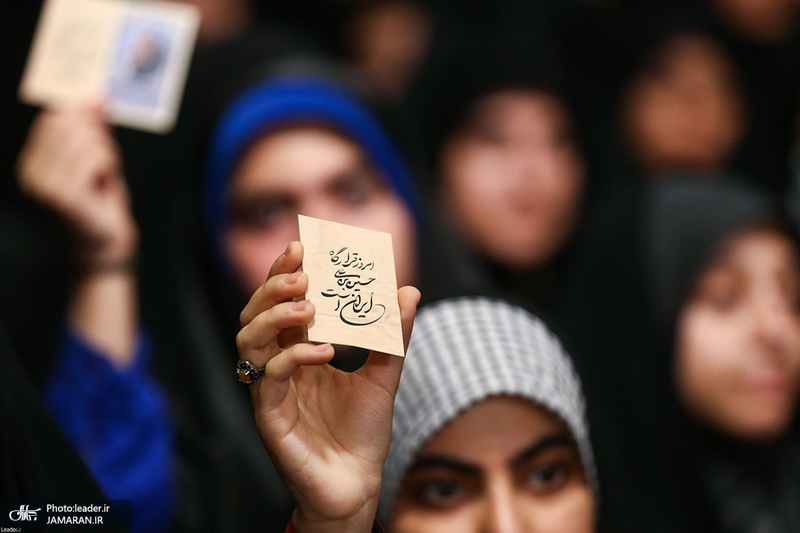 امروز قرارگاه
حسین بن علی
ایران است
جماران
Photo:leader.ir
JAMARAN.IR
Leader.ir